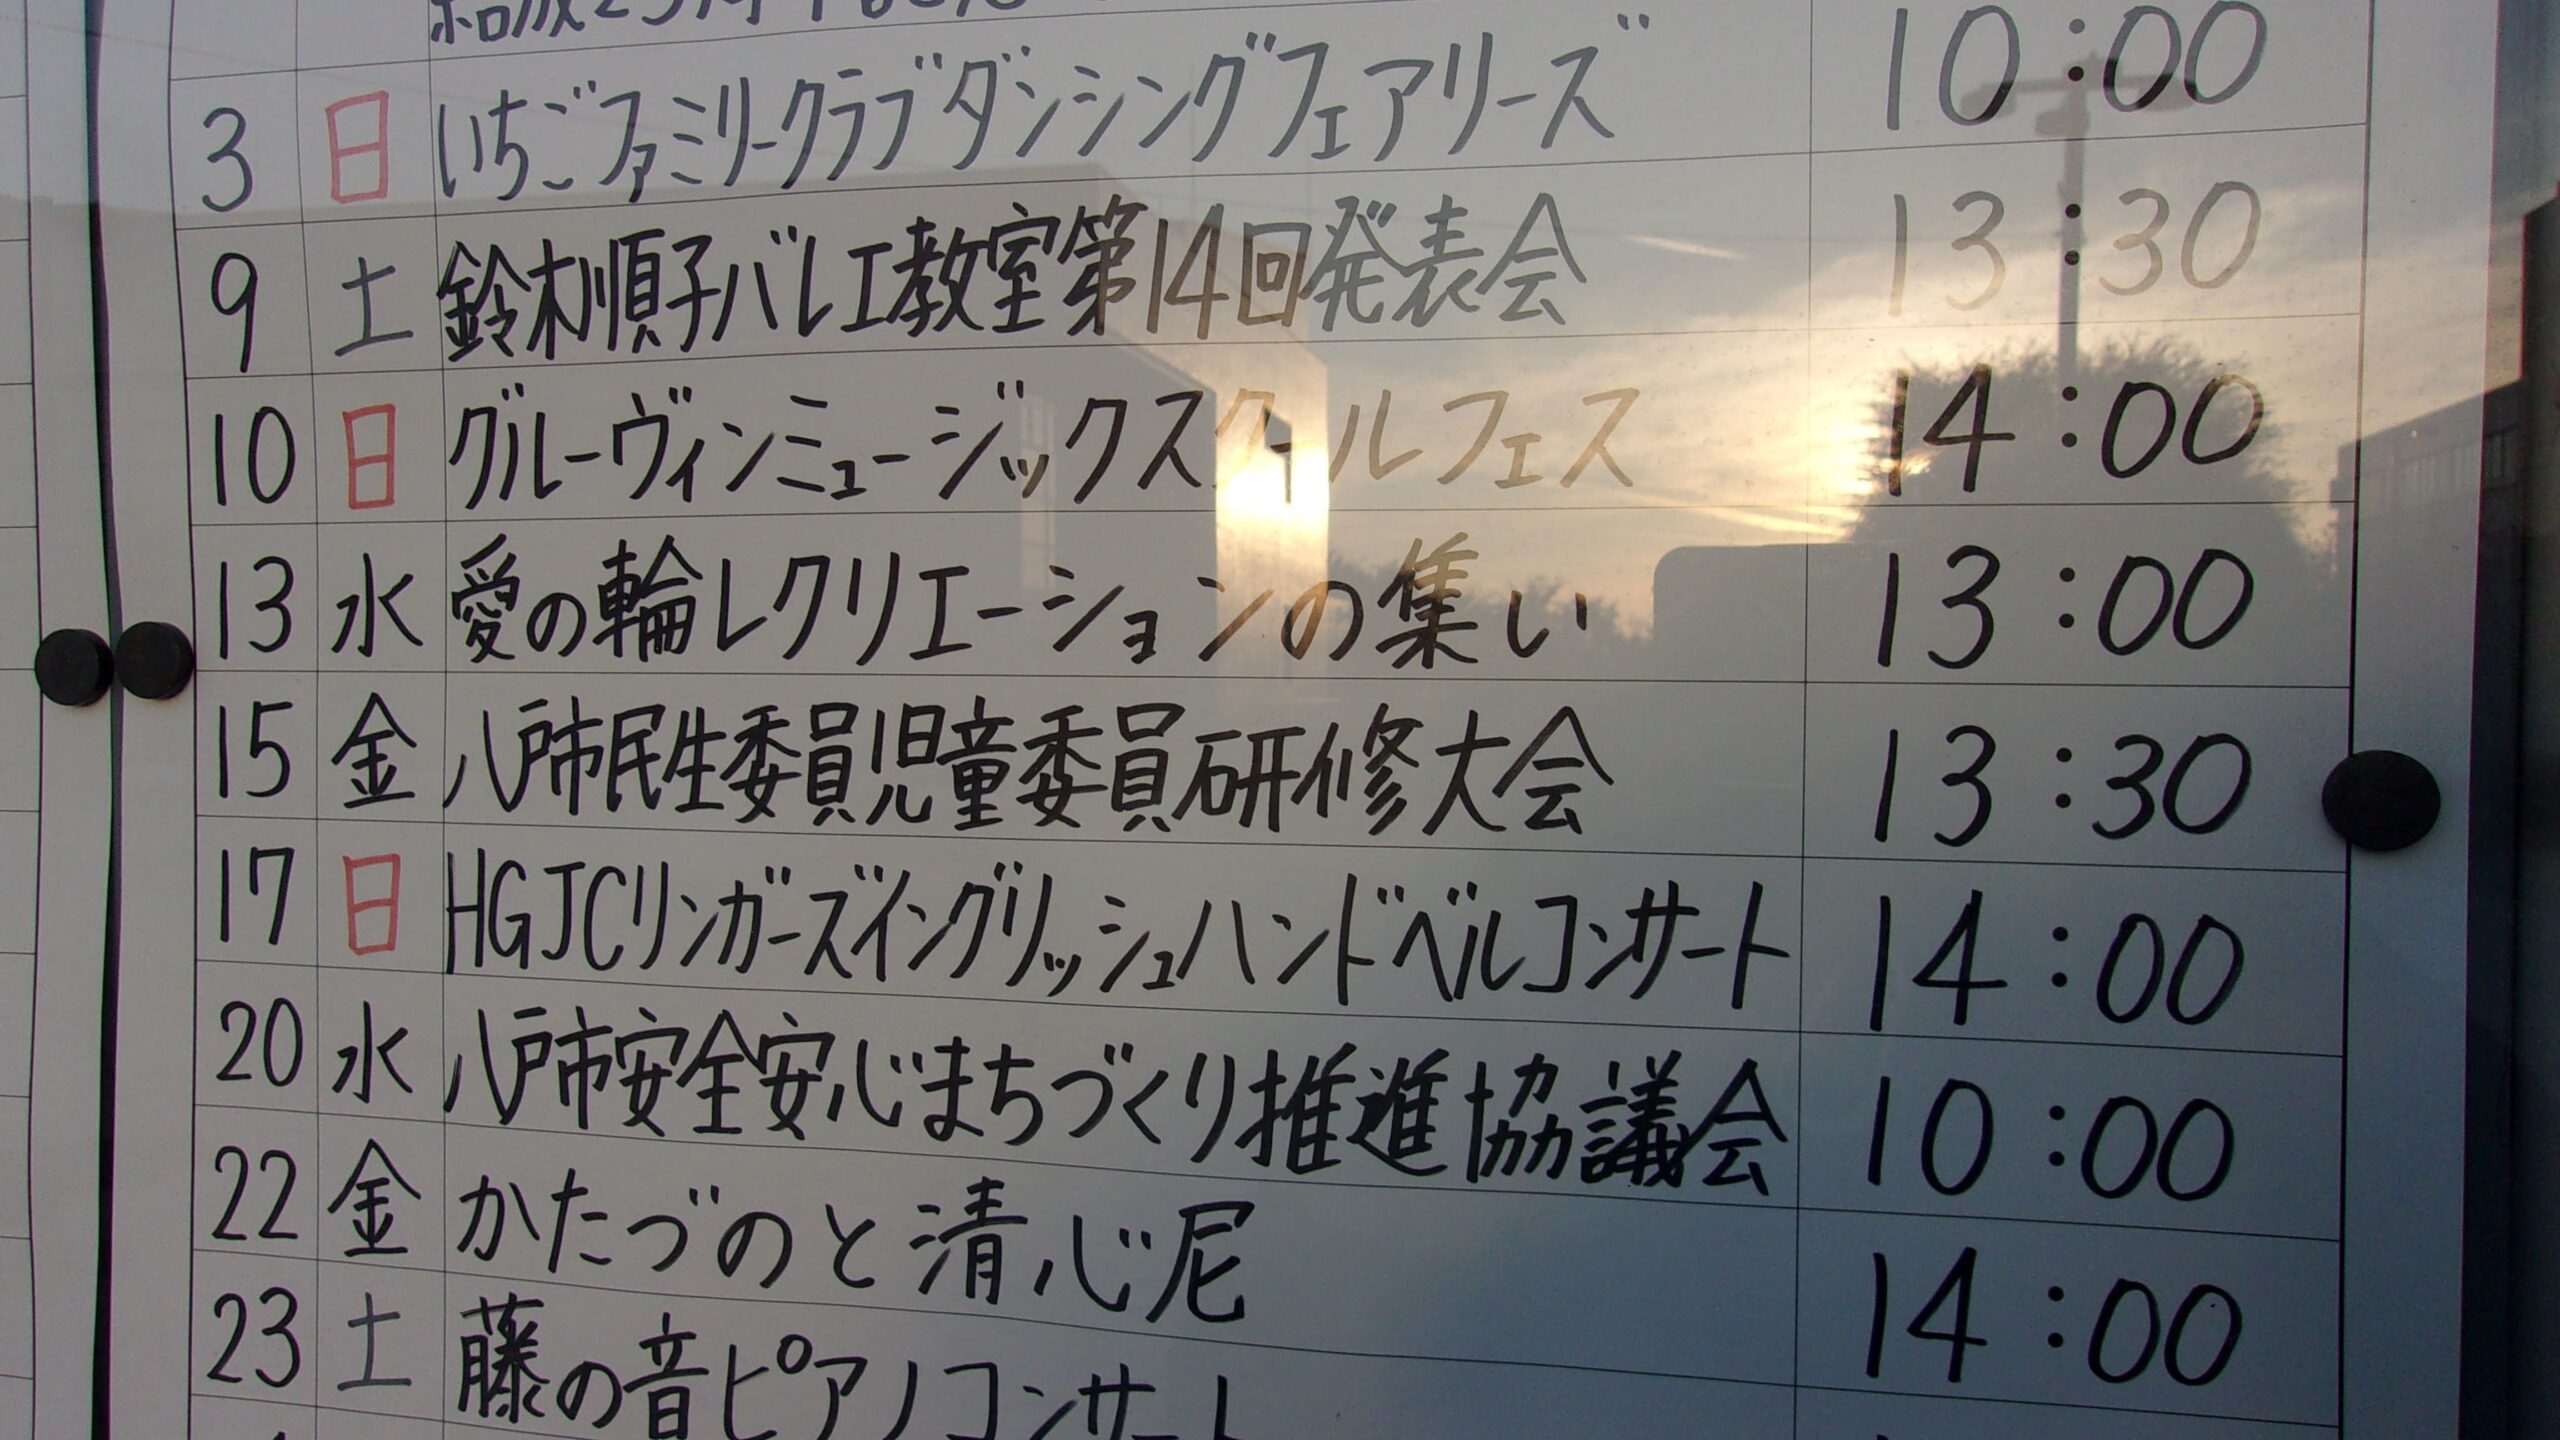 3 日 いちごファミリークラブダンシングフェアリーズ 10:00
9 土 鈴木順子バレエ教室第14回発表会 13:30
10 日 グルーヴィンミュージックスクールフェス 14:00
13 水 愛の輪レクリエーションの集い 13:00
15 金 八戸市民生委員児童委員研修大会 13:30
17 日 HGJCリンガーズイングリッシュハンドベルコンサート 14:00
20 水 八戸市安全安心まちづくり推進協議会 10:00
22 金 かたづのと清心尼 14:00
23 土 藤の音ピアノコンサート